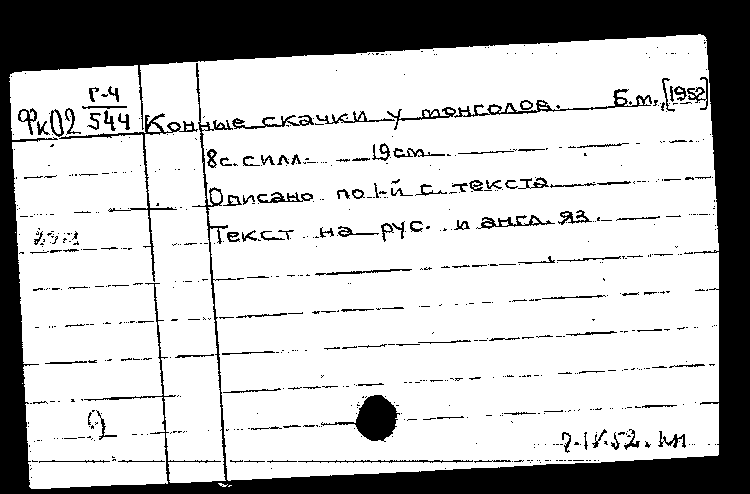 Г-4
ФкО2 544 Конные скачки у монголов. Б.м., [1952]
8с. с илл. 19см.
Описано по 1-й с. текста
Текст на рус. и англ. яз.